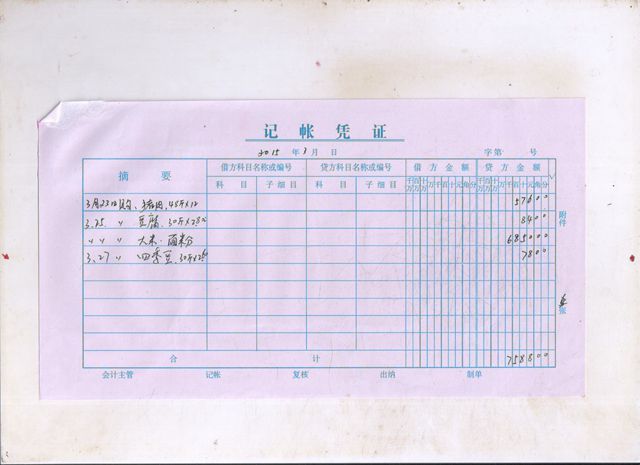 记帐凭证
2015 年 3 月 日 字第 号
摘要 借方科目名称或编号 贷方科目名称或编号 借方金额 贷方金额
科目 子细目 科目 子细目 千百十万千百十元角分 千百十万千百十元角分
3月23日购、猪肉、48斤×12 57600
3.25 〃 豆腐、30斤×28 8400
〃 〃 〃 大米、面米分 685000
3.27 〃 四季豆、30斤×2.60 7800
附件
张
合计 758800
会计主管 记帐 复核 出纳 制单